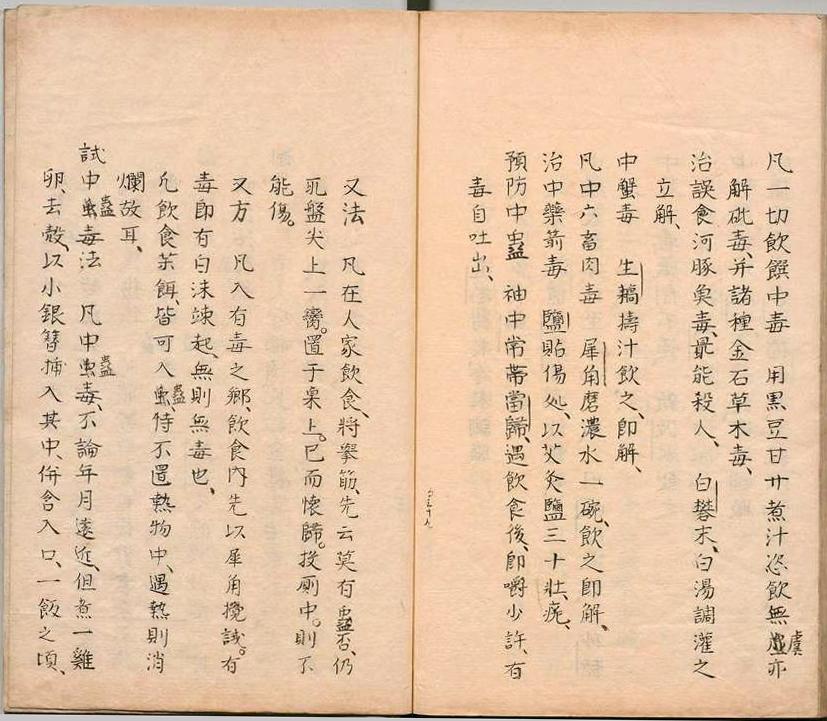 凡一切飲饌中毒　用黒豆甘艸煮汁恣飲無虞亦
解砒毒、并諸種金石草木毒、
治誤食河豚臭毒、最能殺人、　白礬末、白湯調灌之
立解、
中蟹毒　生藕擣汁飲之、即解、
凡中六畜肉毒　犀角磨濃水一碗、飲之即解、
治中藥箭毒　鹽貼傷処、以艾灸鹽三十壮、痊、
預防中蠱　袖中常帶當歸、遇飲食後、即嚼少許、有
毒自吐出、
又法　凡在人家飲食、將拳筯、先云莫有蠱否、仍
死盤尖上一臠。置于桌上。已而懷歸。投厠中。則不
能傷。
又方　凡入有毒之郷、飲食内先以犀角攪試。有
毒即有白沫竦起、無則無毒也、
凡飲食茶餌、皆可入蠱、待不置熱物中、遇熱則消
爛故耳、
試中蠱毒法　凡中蠱毒、不論年月遠近、但煮一雞
卵、去殻、以小銀簪插入其中、併含入口、一飯之頃、